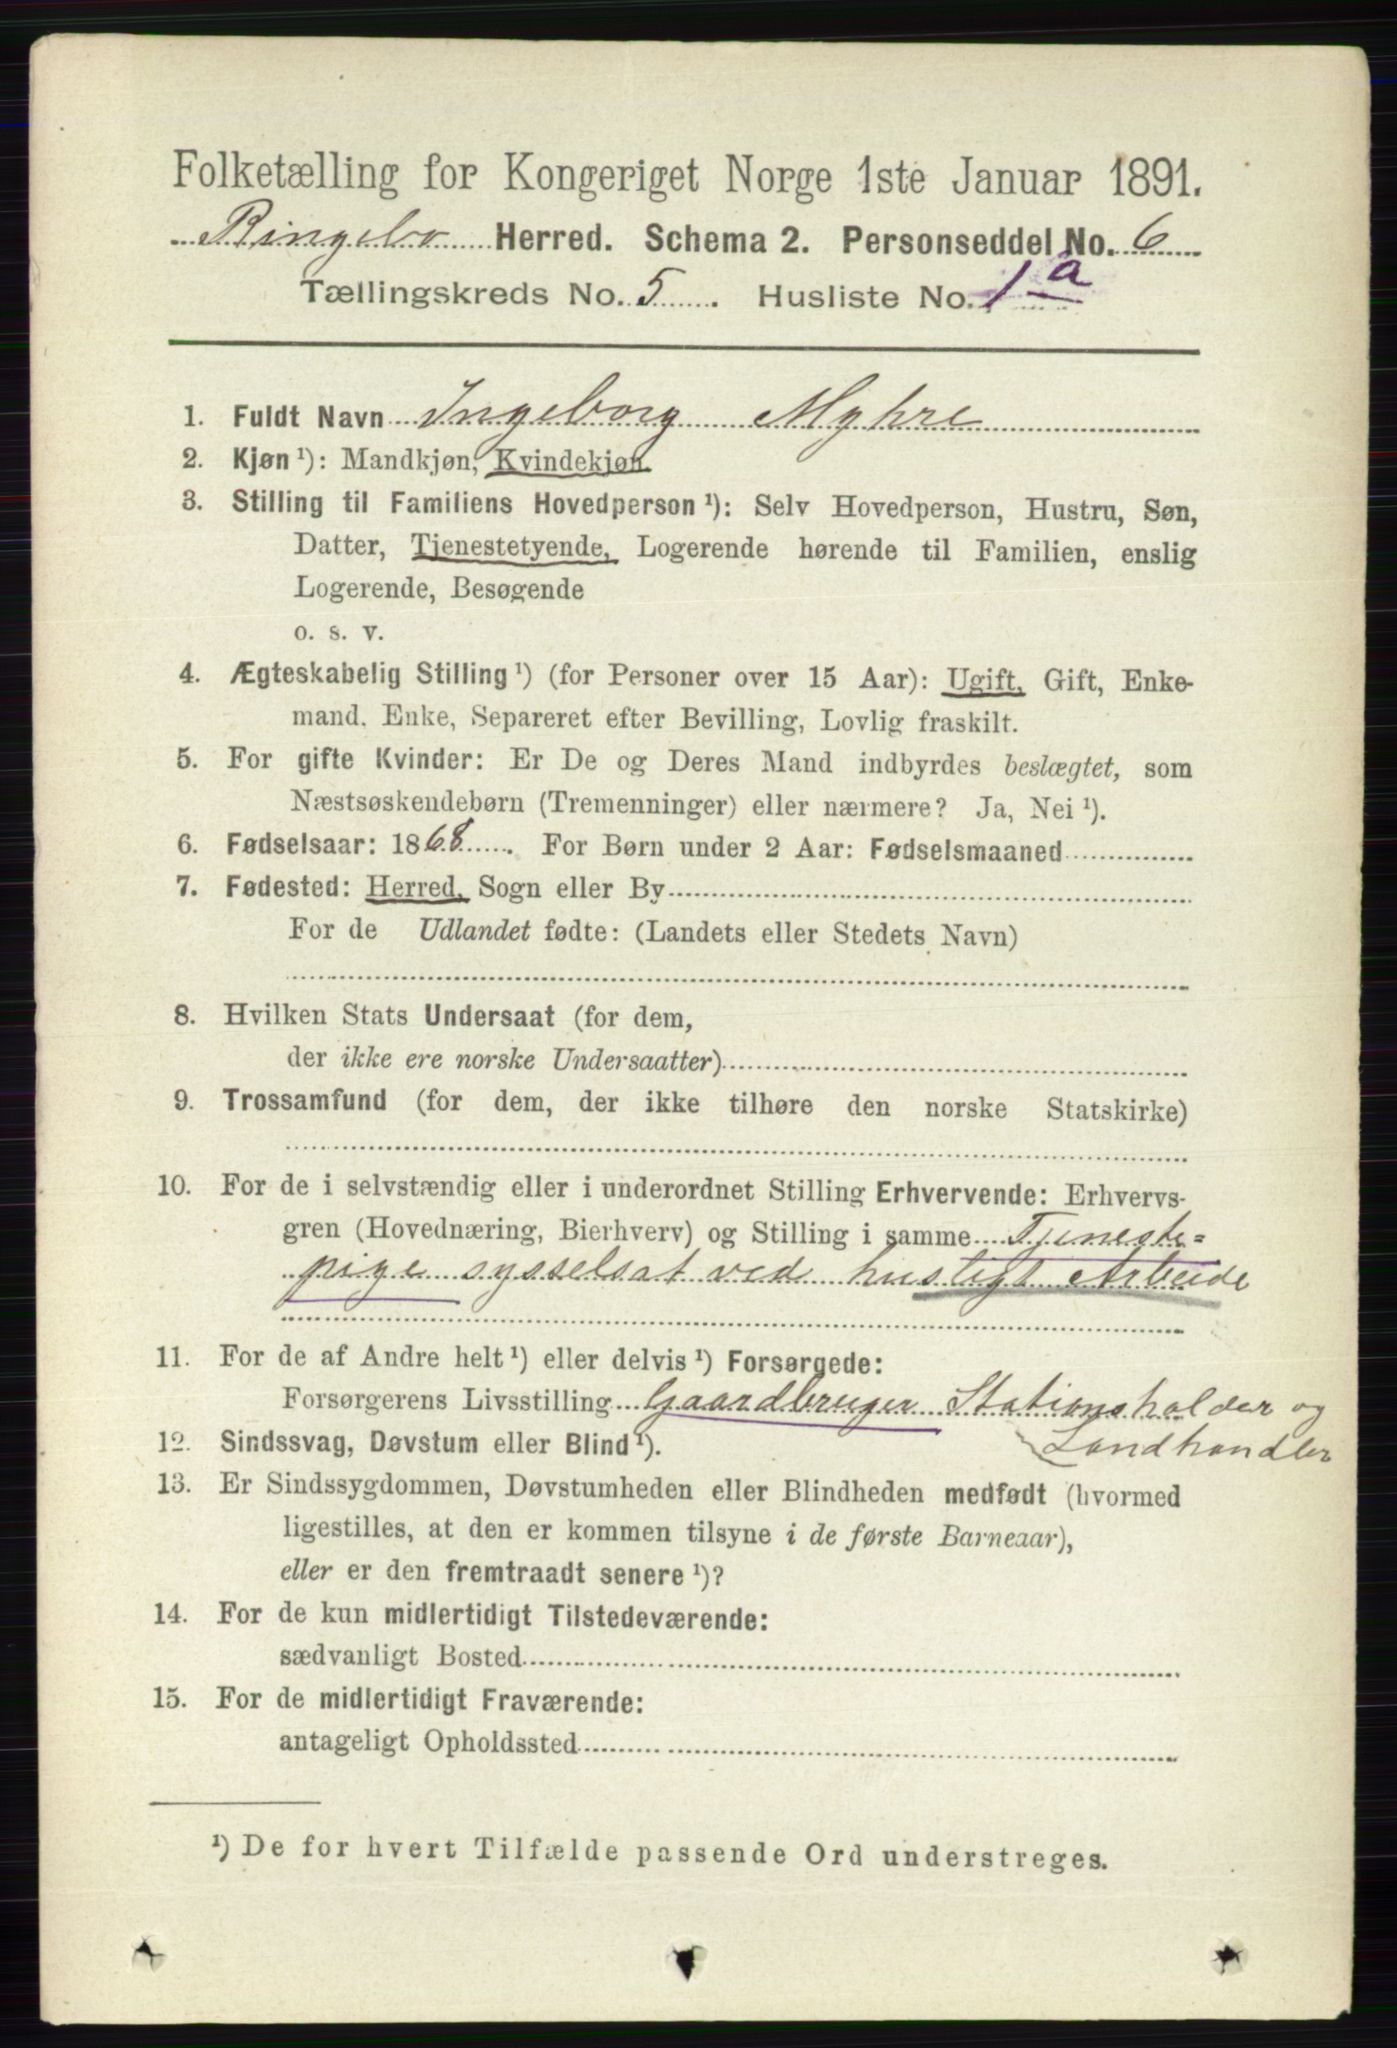 Folketælling for Kongeriget Norge 1ste Januar 1891.
Ringebo Herred. Schema 2. Personseddel No. 6
Tællingskreds No. 5. Husliste No. 1 a
1. Fuldt Navn Ingeborg Myhre
2. Kjøn ¹): Mandkjøn, Kvindekjøn
3. Stilling til Familiens Hovedperson ¹): Selv Hovedperson, Hustru, Søn,
Datter, Tjenestetyende, Logerende hørende til Familien, enslig
Logerende, Besøgende
o. s. v.
4. Ægteskabelig Stilling ¹) (for Personer over 15 Aar): Ugift, Gift, Enke-
mand. Enke, Separeret efter Bevilling, Lovlig fraskilt.
5. For gifte Kvinder: Er De og Deres Mand indbyrdes beslægtet, som
Næstsøskendebørn (Tremenninger) eller nærmere? Ja, Nei ¹).
6. Fødselsaar: 1868. For Børn under 2 Aar: Fødselsmaaned
7. Fødested: Herred, Sogn eller By
For de Udlandet fødte: (Landets eller Stedets Navn)
8. Hvilken Stats Undersaat (for dem,
der ikke ere norske Undersaatter)
9. Trossamfund (for dem, der ikke tilhøre den norske Statskirke)
10. For de i selvstændig eller i underordnet Stilling Erhvervende: Erhvervs-
gren (Hovednæring, Bierhverv) og Stilling i samme Tjeneste=
pige sysselsat ved husligt Arbeide
11. For de af Andre helt ¹) eller delvis ¹) Forsørgede:
Forsørgerens Livsstilling Gaardbruger Stationsholder og
Landhandler
12. Sindssvag, Døvstum eller Blind ¹).
13. Er Sindssygdommen, Døvstumheden eller Blindheden medfødt (hvormed
ligestilles, at den er kommen tilsyne i de første Barneaar),
eller er den fremtraadt senere ¹)?
14. For de kun midlertidigt Tilstedeværende:
sædvanligt Bosted
15. For de midlertidigt Fraværende:
antageligt Opholdssted
¹) De for hvert Tilfælde passende Ord understreges.